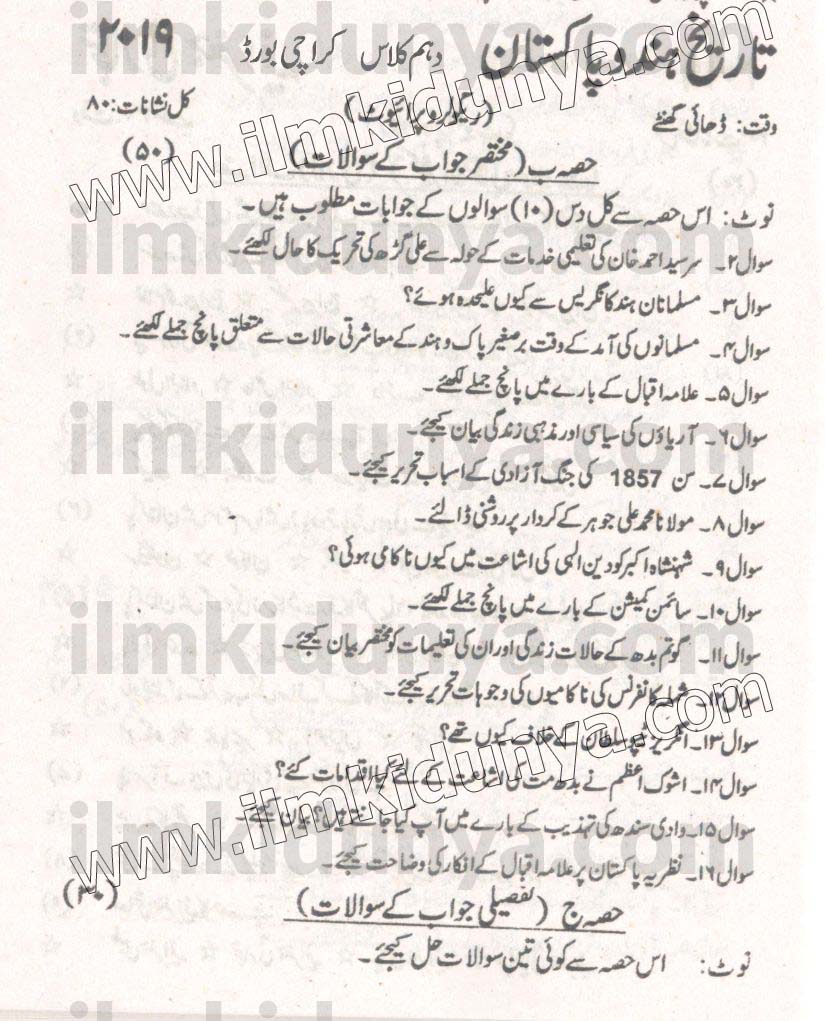 تاریخ ہندو پاکستان دہم کلاس کراچی بورڈ ۲۰۱۹
وقت: ڈھائی گھنٹے (ریگولر و پرائیوٹ) کل نشانات: ۸۰
حصہ ب (مختصر جواب کے سوالات) (۵۰)
نوٹ: اس حصہ سے کل دس (۱۰) سوالوں کے جوابات مطلوب ہیں۔
سوال ۲۔ سر سید احمد خان کی تعلیمی خدمات کے حوالہ سے علی گڑھ کی تحریک کا حال لکھئے۔
سوال ۳۔ مسلمانان ہند کانگریس سے کیوں علیحدہ ہوئے؟
سوال ۴۔ مسلمانوں کی آمد کے وقت بر صغیر پاک و ہند کے معاشرتی حالات سے متعلق پانچ جملے لکھئے۔
سوال ۵۔ علامہ اقبال کے بارے میں پانچ جملے لکھئے۔
سوال ۶۔ آریاؤں کی سیاسی اور مذہبی زندگی بیان کیجئے۔
سوال ۷۔ سن 1857 کی جنگ آزادی کے اسباب تحریر کیجئے۔
سوال ۸۔ مولانا محمد علی جوہر کے کردار پر روشنی ڈالئے۔
سوال ۹۔ شہنشاہ اکبر کو دین الٰہی کی اشاعت میں کیوں ناکامی ہوئی؟
سوال ۱۰۔ سائمن کمیشن کے بارے میں پانچ جملے لکھئے۔
سوال ۱۱۔ گوتم بدھ کے حالات زندگی اور ان کی تعلیمات کو مختصر بیان کیجئے۔
سوال ۱۲۔ شملہ کانفرنس کی ناکامیوں کی وجوہات تحریر کیجئے۔
سوال ۱۳۔ انگریز ٹیپو سلطان کے خلاف کیوں تھے؟
سوال ۱۴۔ اشوک اعظم نے بدھ مت کی اشاعت کے لئے کیا اقدامات کئے؟
سوال ۱۵۔ وادی سندھ کی تہذیب کے بارے میں آپ کیا جانتے ہیں؟ بیان کیجئے۔
سوال ۱۶۔ نظریہ پاکستان پر علامہ اقبال کے افکار کی وضاحت کیجئے۔
حصہ ج (تفصیلی جواب کے سوالات) (۳۰)
نوٹ: اس حصہ سے کوئی تین سوالات حل کیجئے۔
www.ilmkidunya.com
www.ilmkidunya.com
ilmkidunya.com
ilmkidunya.com
ilmkidunya.com
ilmkidunya.com
ilmkidunya.com
ilmkidunya.com